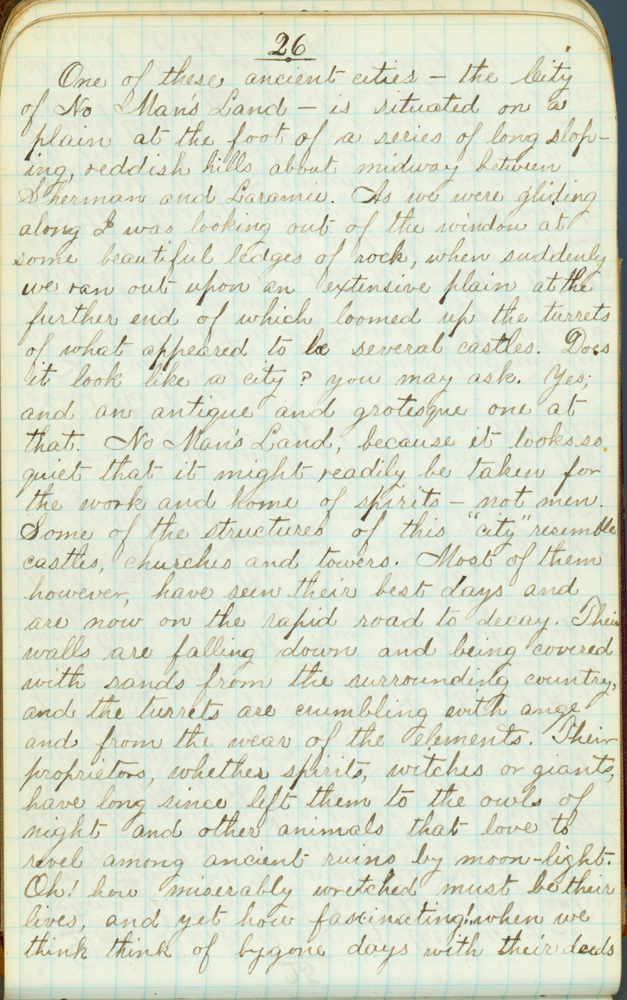 26
One of these ancient cities – the City
of No Man's Land – is situated on a
plain at the foot of a series of long slop-
ing, reddish hills about midway between
Sherman and Laramie. As we were gliding
along I was looking out of the window at
some beautiful ledges of rock, when suddenly
we ran out upon an extensive plain at the
further end of which loomed up the turrets
of what appeared to be several castles. Does
it look like a city? you may ask. Yes;
and an antique and grotesque one at
that. No Man's Land, because it looks so
quiet that it might readily be taken for
the work and home of spirits – not men.
Some of the structures of this "city" resemble
castles, churches and towers. Most of them
however, have seen their best days and
are now on the rapid road to decay. Their
walls are falling down and being covered
with sands from the surrounding country,
and the turrets are crumbling with ange
and from the wear of the elements. Their
proprietors, whether spirits, witches or giants,
have long since left them to the owls of
night and other animals that love to
revel among ancient ruins by moon-light.
Oh! how miserably wretched must be their
lives, and yet how fascinating! when we
think think of bygone days with their deeds